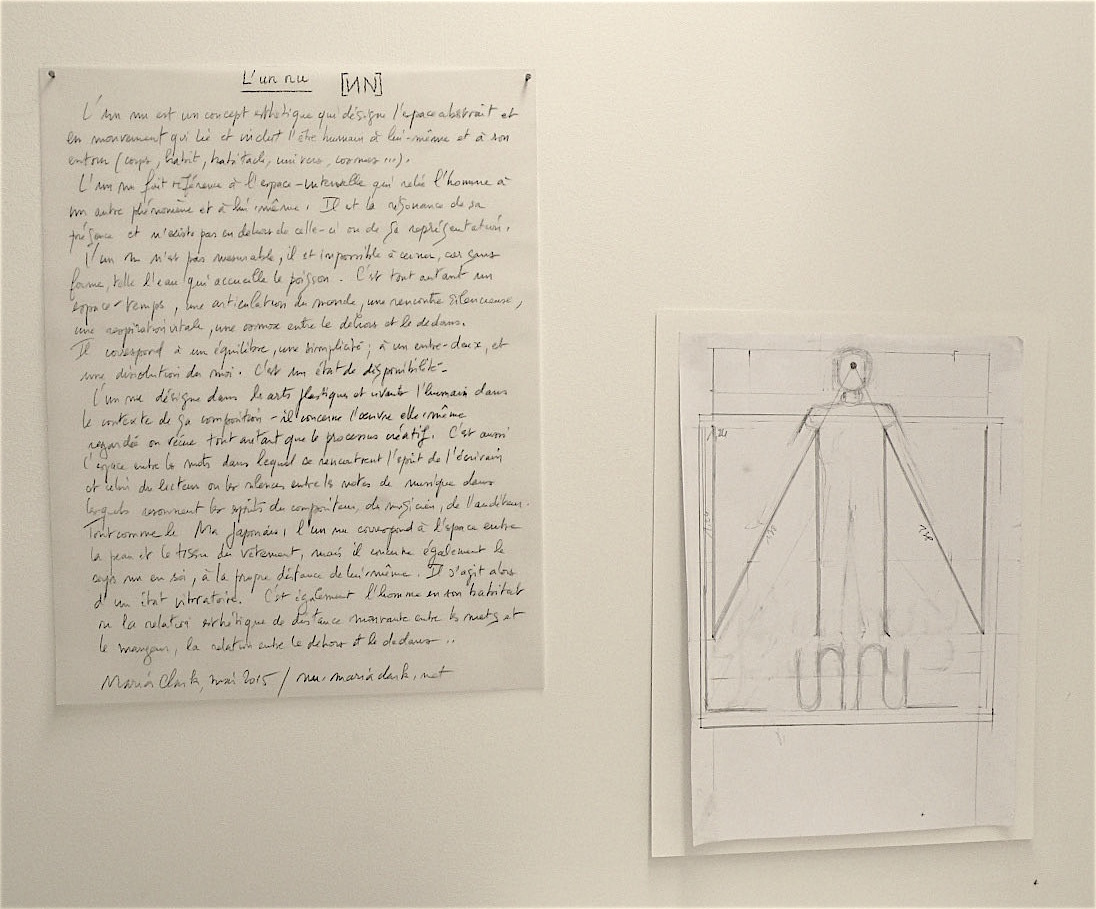 L'un nu [ИN]
L'un nu est un concept esthétique qui désigne l'espace abstrait et
en mouvement qui lie et inclut l'être humain à lui-même et à son
entour (corps, habit, habitacle, univers, cosmos ...).
L'un nu fait référence à l'espace-intervalle qui relie l'homme à
un autre phénomène et à lui-même. Il est la résonance de sa
présence et n'existe pas en dehors de celle-ci ou de sa représentation.
L'un nu n'est pas mesurable, il est impossible à cerner, car sans
forme, telle l'eau qui accueille le poisson. C'est tout autant un
espace-temps, une articulation du monde, une rencontre silencieuse,
une respiration vitale, une osmose entre le dehors et le dedans.
Il correspond à un équilibre, une simplicité; à un entre-deux, et
une dissolution du moi. C'est un état de disponibilité.
L'un nu désigne dans les arts plastiques et vivants l'humain dans
le contexte de sa composition - il concerne l'œuvre elle-même
regardée ou vécue tout autant que le processus créatif. C'est aussi
l'espace entre les mots dans lequel se rencontrent l'esprit de l'écrivain
et celui du lecteur ou les silences entre les notes de musique dans
lesquels résonnent les esprits du compositeur, du musicien, de l'auditeur.
Tout comme le Ma Japonais, l'un nu correspond à l'espace entre
la peau et le tissu du vêtement, mais il concerne également le
corps nu en soi, à la propre distance de lui-même. Il s'agit alors
d'un état vibratoire. C'est également l'homme en son habitat
ou la relation esthétique de distance mouvante entre les mets et
le mangeur, la relation entre le dehors et le dedans ..
Maria Clark, mai 2015 / nu.mariaclark.net
un nu